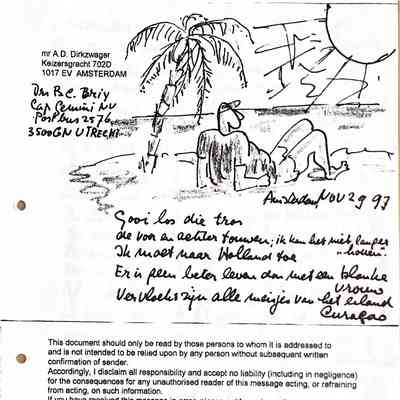 mr A.D. Dirkzwager
Keizersgracht 702D
1017 EV AMSTERDAM
Drs B.C. Brix
Cap Gemini NV
Postbus 2576
3500 GN UTRECHT
Amsterdam NOV 29 93
Gooi los die tros
die voor en achter touwen; ik kan het niet langer
"houen"
Ik moet naar Holland toe
Er is geen beter leven dan met een blanke
vrouw
Vervloekt zijn alle meisjes van het eiland
Curaçao
This document should only be read by those persons to whom it is addressed to
and is not intended to be relied upon by any person without subsequent written
confirmation of sender.
Accordingly, I disclaim all responsibility and accept no liability (including in negligence)
for the consequences for any unauthorised reader of this message acting, or refraining
from acting, on such information.
If you have received this message in error, please